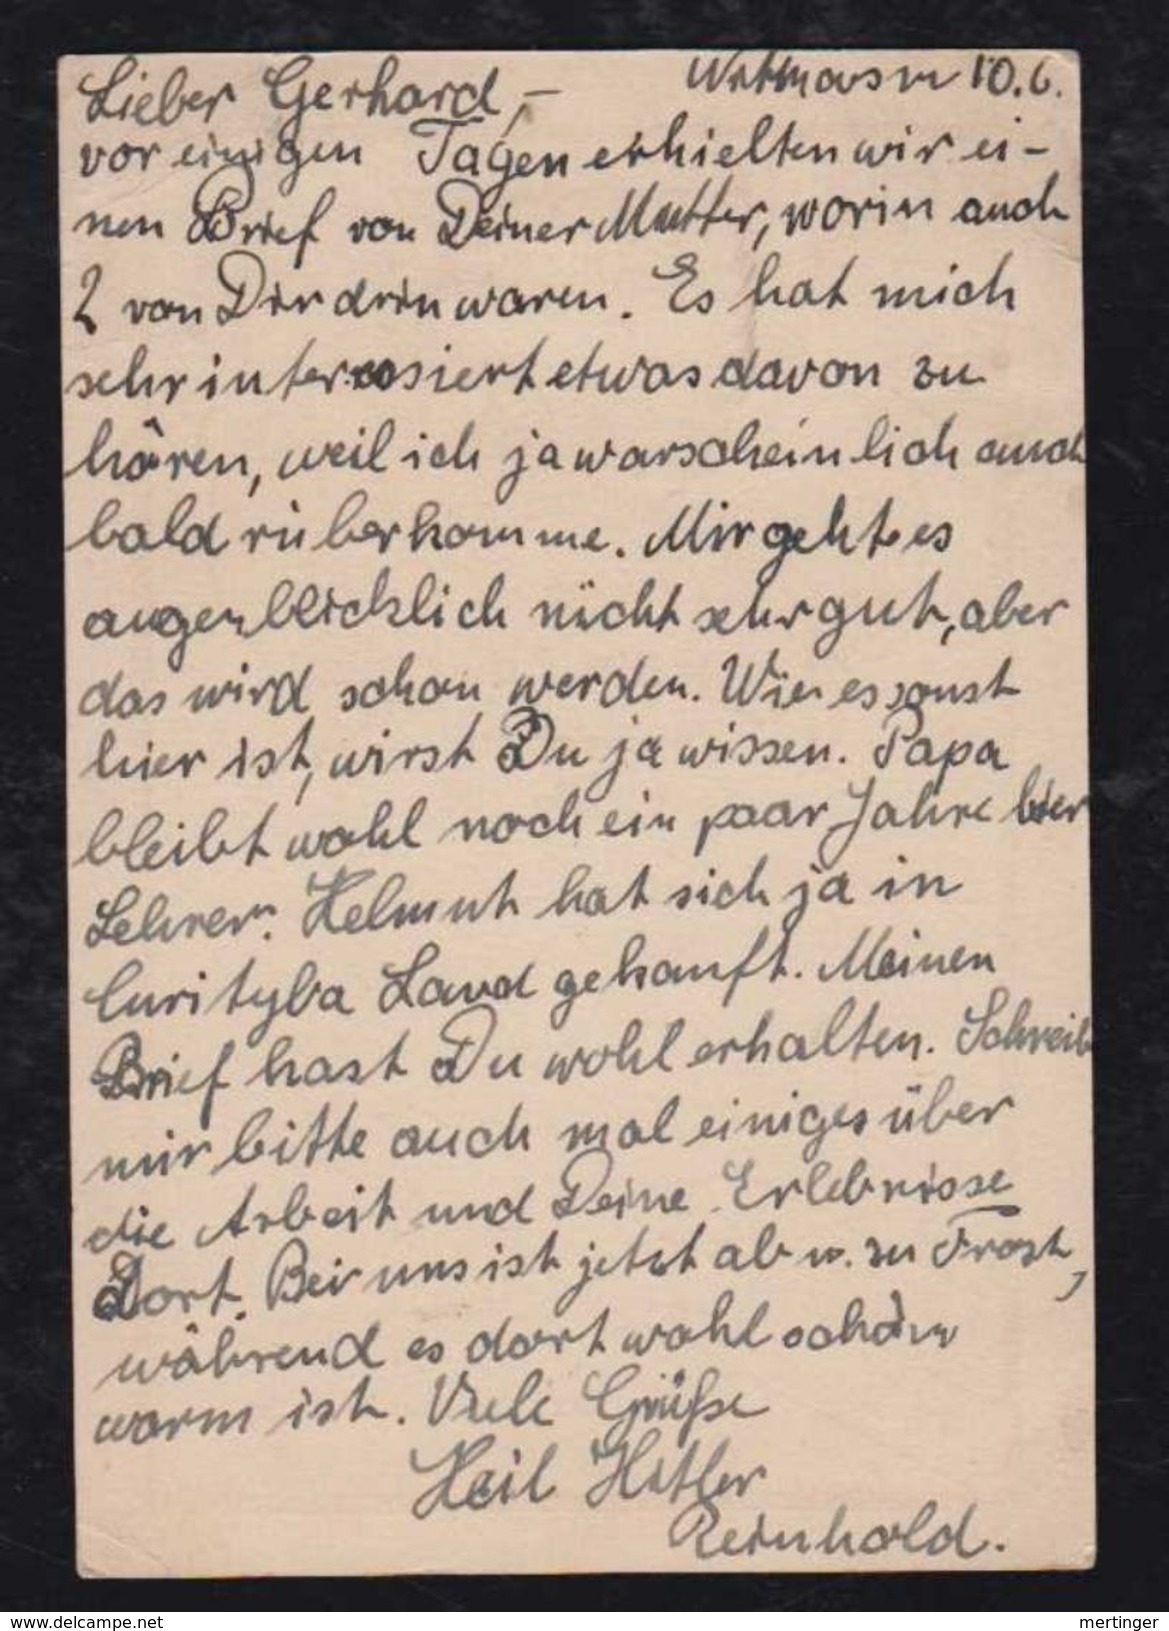 Lieber Gerhard, – 10.6.
vor einigen Tagen erhielten wir ei-
nen Brief von Deiner Mutter, worin auch
2 von Dir drin waren. Es hat mich
sehr interessiert etwas davon zu
hören, weil ich ja warscheinlich auch
bald rüberkomme. Mir geht es
augenblicklich nicht sehr gut, aber
das wird schon werden. Wie es sonst
hier ist, wirst Du ja wissen. Papa
bleibt wohl noch ein paar Jahre hier
Lehrer. Helmut hat sich ja in
Curityba Land gekauft. Meinen
Brief hast Du wohl erhalten. Schreib
mir bitte auch mal einiges über
die Arbeit und Deine Erlebnisse
Dort. Bei uns ist jetzt ab u. zu Frost,
während es dort wohl schön
warm ist. Viele Grüße
Heil Hitler
Reinhold.
www.delcampe.net
mertinger